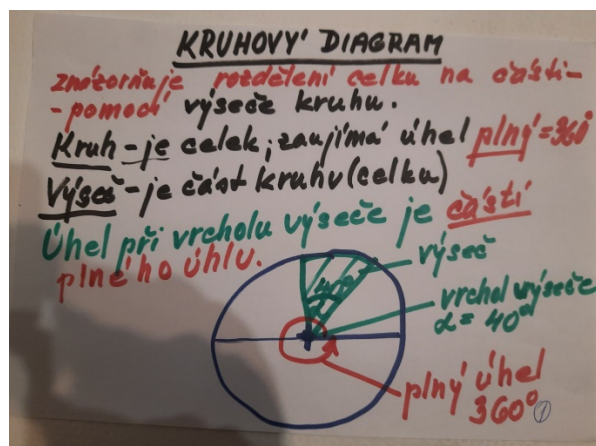 KRUHOVÝ DIAGRAM
znázorňuje rozdělení celku na části-
-pomocí výseče kruhu.
Kruh-je celek; zaujímá úhel plný=360°
Výseč-je část kruhu(celku)
Úhel při vrcholu výseče je částí
plného úhlu.
40°
výseč
vrchol výseče
α=40°
plný úhel
360°
1